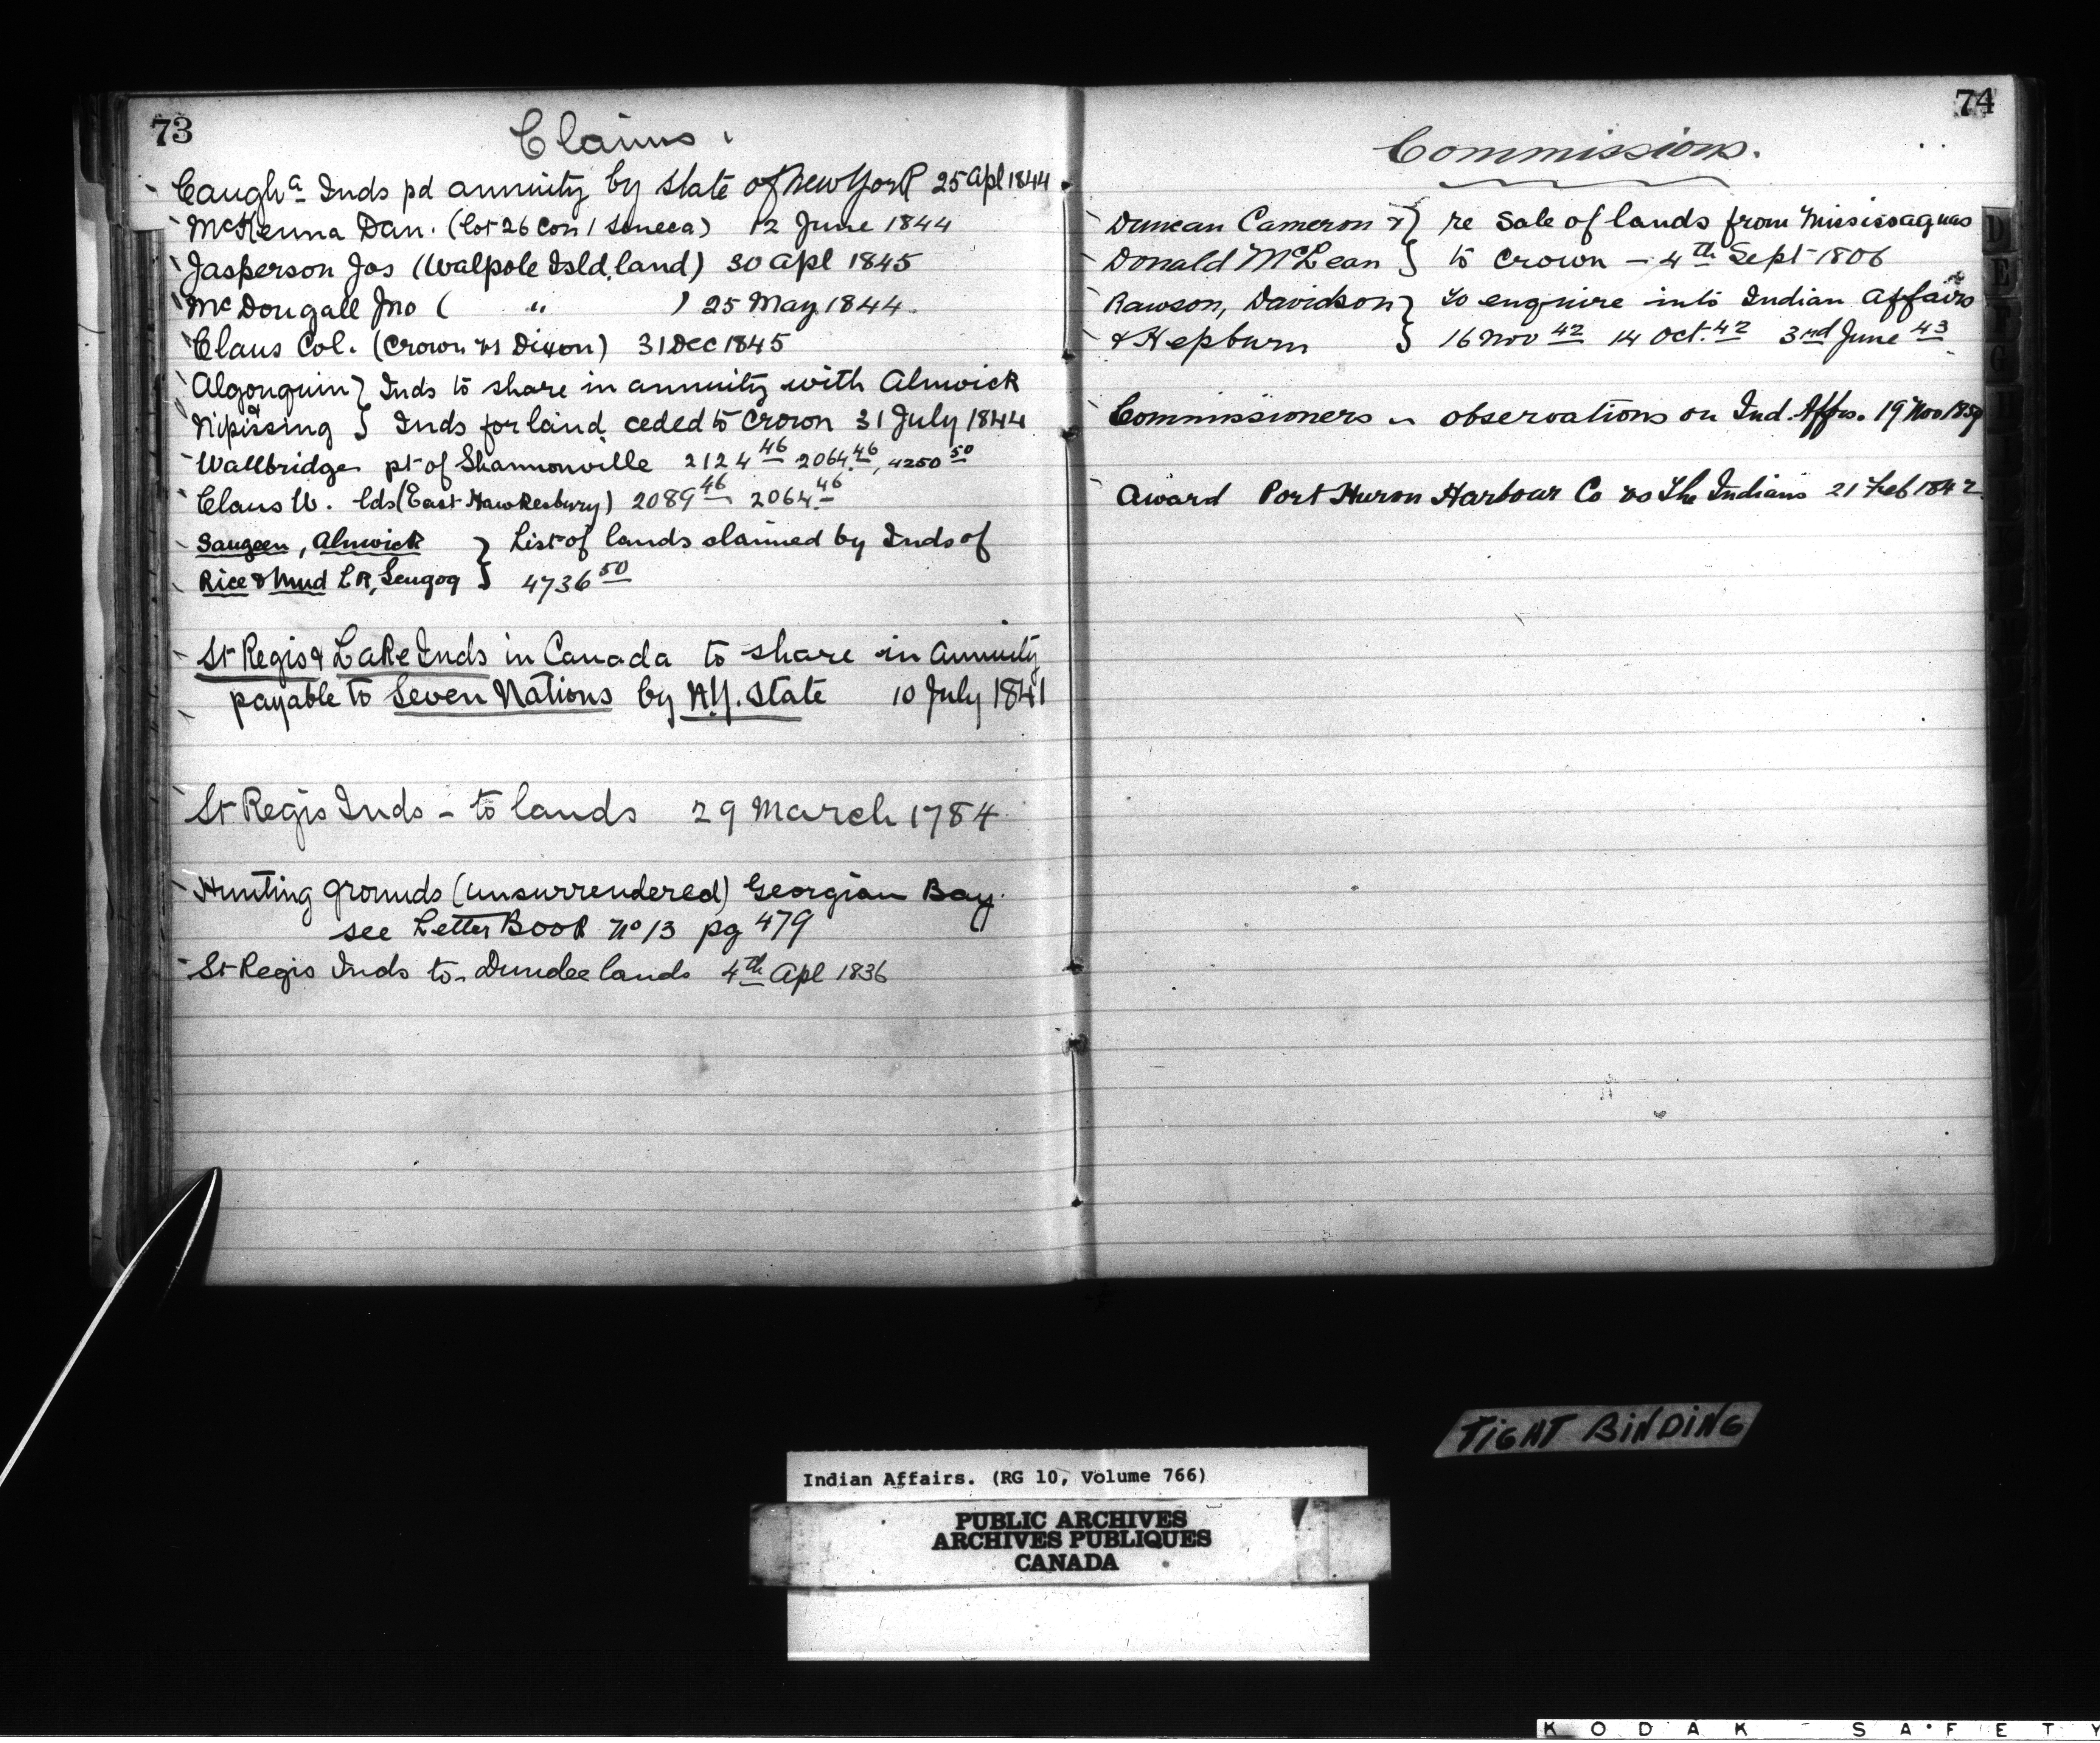 73
Claims.
Caughᵃ Inds pd annuity by state of New York 25 Apl 1844
McKenna Dan. (lot 26 Con 1 Seneca) 12 June 1844
Jasperson Jos (Walpole Isld. land) 30 Apl 1845
McDougall Jno ( " ) 25 May 1844.
Claus Col. (Crown vs Dixon) 31 Dec 1845
Algonquin } Inds to share in annuity with Alnwick
& Nipissing } Inds for land ceded to Crown 31 July 1844
Wallbridge pt of Shannonville 2124 46 2064. 46, 4250 50
Claus W. lds (East Hawkesbury) 2089 46 2064. 46
Saugeen, Alnwick } List of lands claimed by Inds of
Rice & Mud LR, Scugog } 4736 50
St Regis & Lake Inds in Canada to share in Annuity
payable to Seven Nations by N.Y. State 10 July 1841
St Regis Inds - to lands 29 March 1784
Hunting grounds (unsurrendered) Georgian Bay.
see Letter Book No 13 pg 479
St Regis Inds to Dundee lands 4th Apl 1836
74
Commissions.
Duncan Cameron & } re Sale of lands from Mississaguas
Donald McLean } to Crown - 4th Sept 1806
Rawson, Davidson } to enquire into Indian Affairs
& Hepburn } 16 Nov 42 14 Oct. 42 3rd June 43
Commissioners observations on Ind. Affrs. 19 Nov
Award Port Huron Harbour Co vs The Indians 21 Feb 1842
D
E
F
G
H
TIGHT BINDING
Indian Affairs. (RG 10, Volume 766)
PUBLIC ARCHIVES
ARCHIVES PUBLIQUES
CANADA
KODAK SAFETY